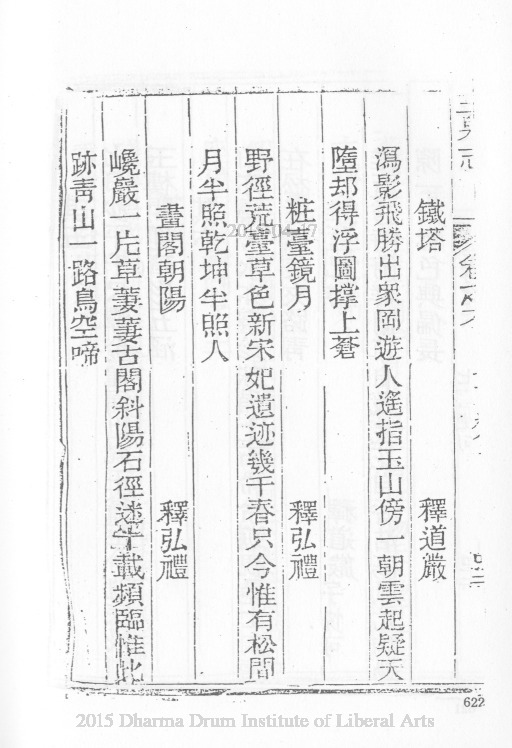 鐵塔　釋道嚴
瀉影飛勝出衆岡遊人遙指玉山傍一朝雲起疑天
墮却得浮圖撑上蒼
粧臺鏡月　釋弘禮
野徑荒臺草色新宋妃遺迹幾千春只今惟有松間
月半照乾坤半照人
畫閣朝陽　釋弘禮
巉巖一片草萋萋古閣斜陽石徑迷千載頻臨惟此
跡靑山一路鳥空啼
622
2015 Dharma Drum Institute of Liberal Arts